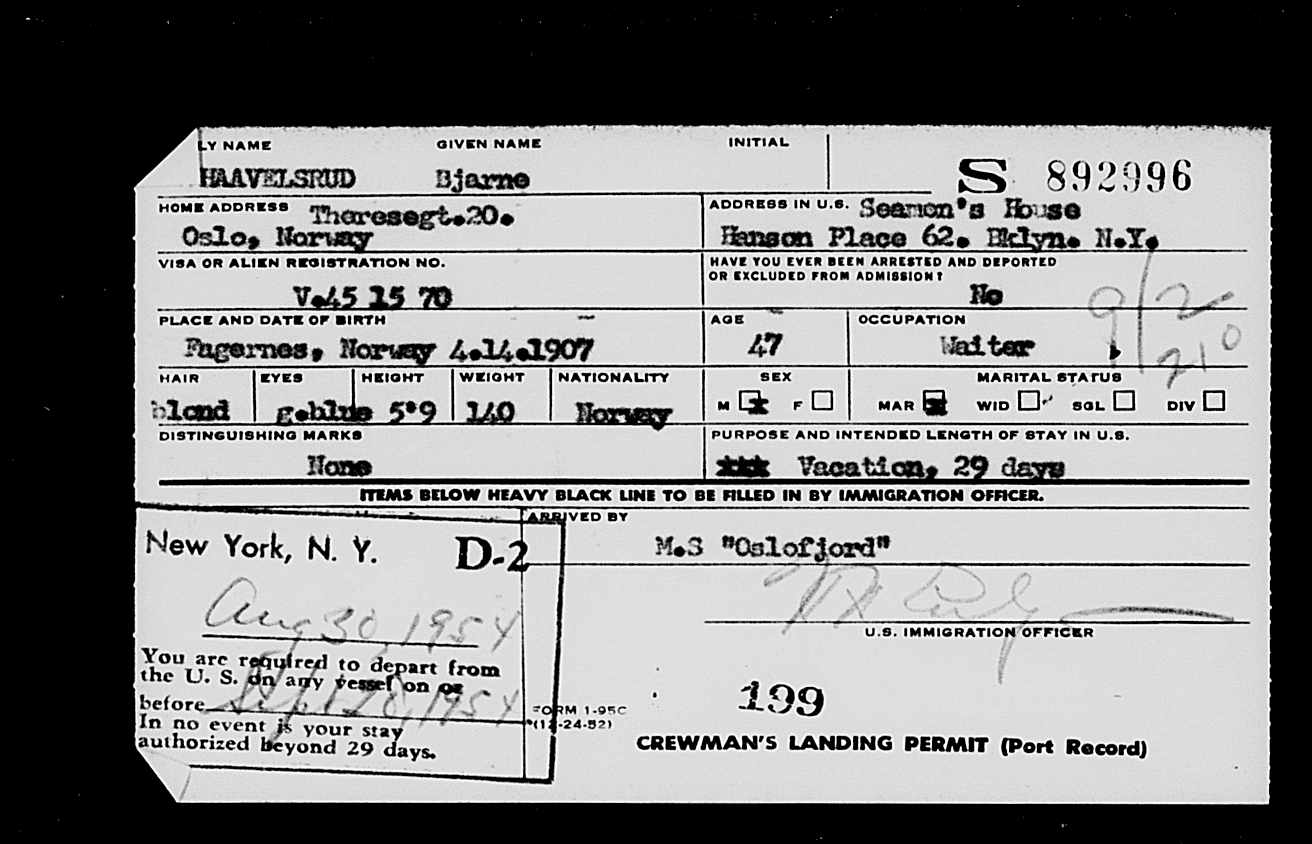 LY NAME GIVEN NAME INITIAL
HAAVELSRUD Bjarne S 892996
HOME ADDRESS Theresegt.20. ADDRESS IN U.S. Seamen's House
Oslo, Norway Hanson Place 62. Bklyn. N.Y.
VISA OR ALIEN REGISTRATION NO. HAVE YOU EVER BEEN ARRESTED AND DEPORTED
OR EXCLUDED FROM ADMISSION?
V.45 15 70 No
PLACE AND DATE OF BIRTH AGE OCCUPATION
Fagernes, Norway 4.14.1907 47 Waiter
9/2
210
HAIR EYES HEIGHT WEIGHT NATIONALITY SEX MARITAL STATUS
blond g.blue 5'9 140 Norway M x F MAR x WID SGL DIV
DISTINGUISHING MARKS PURPOSE AND INTENDED LENGTH OF STAY IN U.S.
None xxx Vacation, 29 days
ITEMS BELOW HEAVY BLACK LINE TO BE FILLED IN BY IMMIGRATION OFFICER.
ARRIVED BY
New York, N. Y. D-2 M.S "Oslofjord"
Aug 30, 1954
U.S. IMMIGRATION OFFICER
You are required to depart from
the U. S. on any vessel on or
before Sept 28, 1954
In no event is your stay
authorized beyond 29 days.
FORM 1-95C
(12-24-52)
199
CREWMAN'S LANDING PERMIT (Port Record)